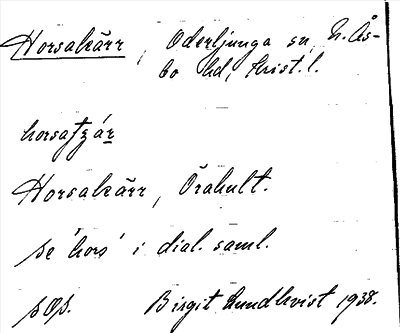 Horsakärr, Oderljunga sn, N. Ås-
bo hd, Krist. l.
Horsakärr, Örahult.
se 'hors' i dial. saml.
sOp. Birgit Lundkvist 1938.